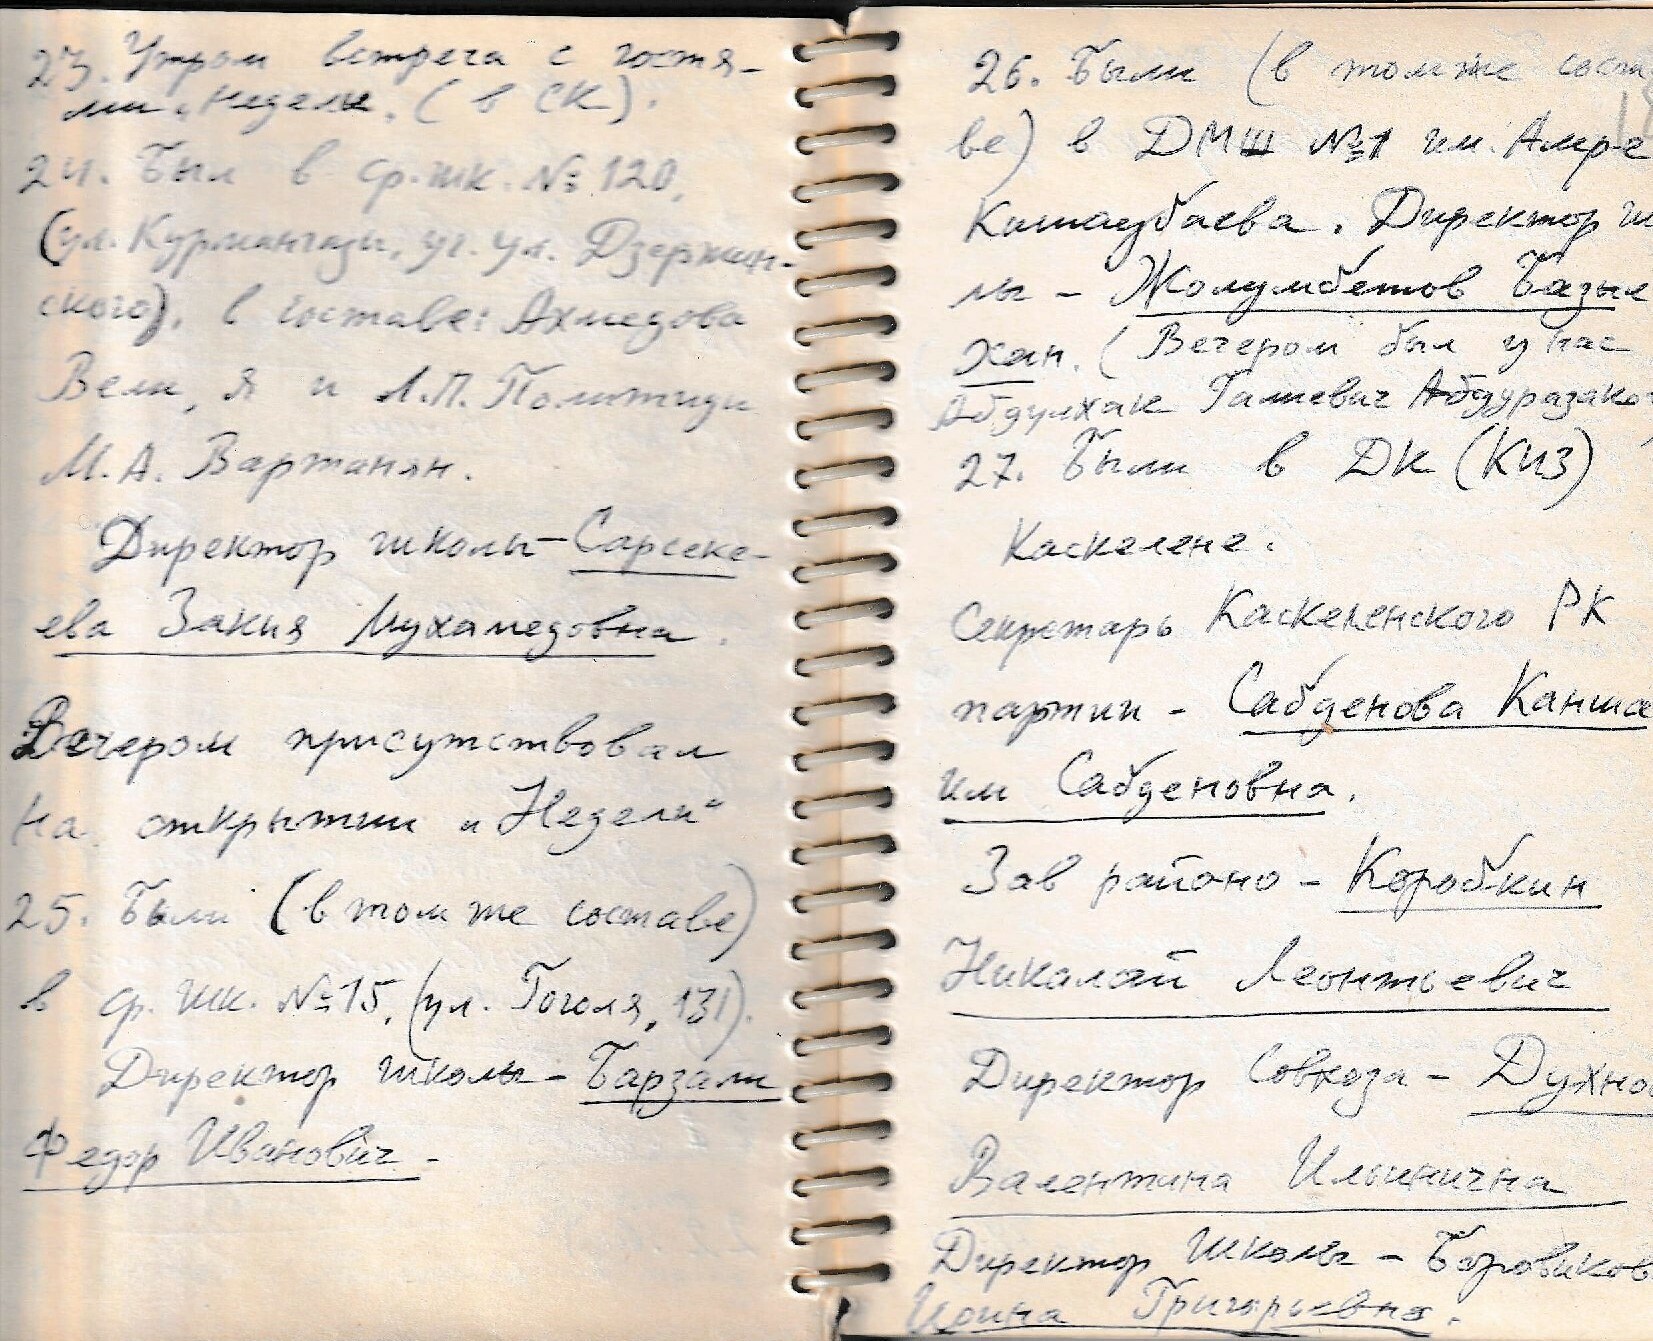 23. Утром встреча с гостя-
ми „Недели. (в СК).
24. Был в ср. шк. № 120,
(ул. Курмангазы, уг. ул. Дзержин-
ского), в составе: Ахмедова
Вели, я и Л.П. Политиди
М.А. Вартанян.
Директор школы – Сарсеке-
ева Закия Мухамедовна.
Вечером присутствовал
на открытии „Недели“
25. Были (в том же составе)
в ср. шк. № 15, (ул. Гоголя, 131).
Директор школы – Барзали
Федор Иванович –
26. Были (в том же соста
ве) в ДМШ №1 им. Амре
Кашаубаева. Директор ш
лы – Жолумбетов Базыл
хан. (Вечером был у нас
Абдулхак Галиевич Абдуразако
27. Были в ДК (КИЗ)
Каскелене.
Секретарь Каскеленского РК
партии – Сабденова Канша
им Сабденовна.
Зав районо – Коробкин
Николай Леонтьевич
Директор Совхоза – Духно
Валентина Ильинична
Директор школы – Боровиков
Ирина Григорьевна.